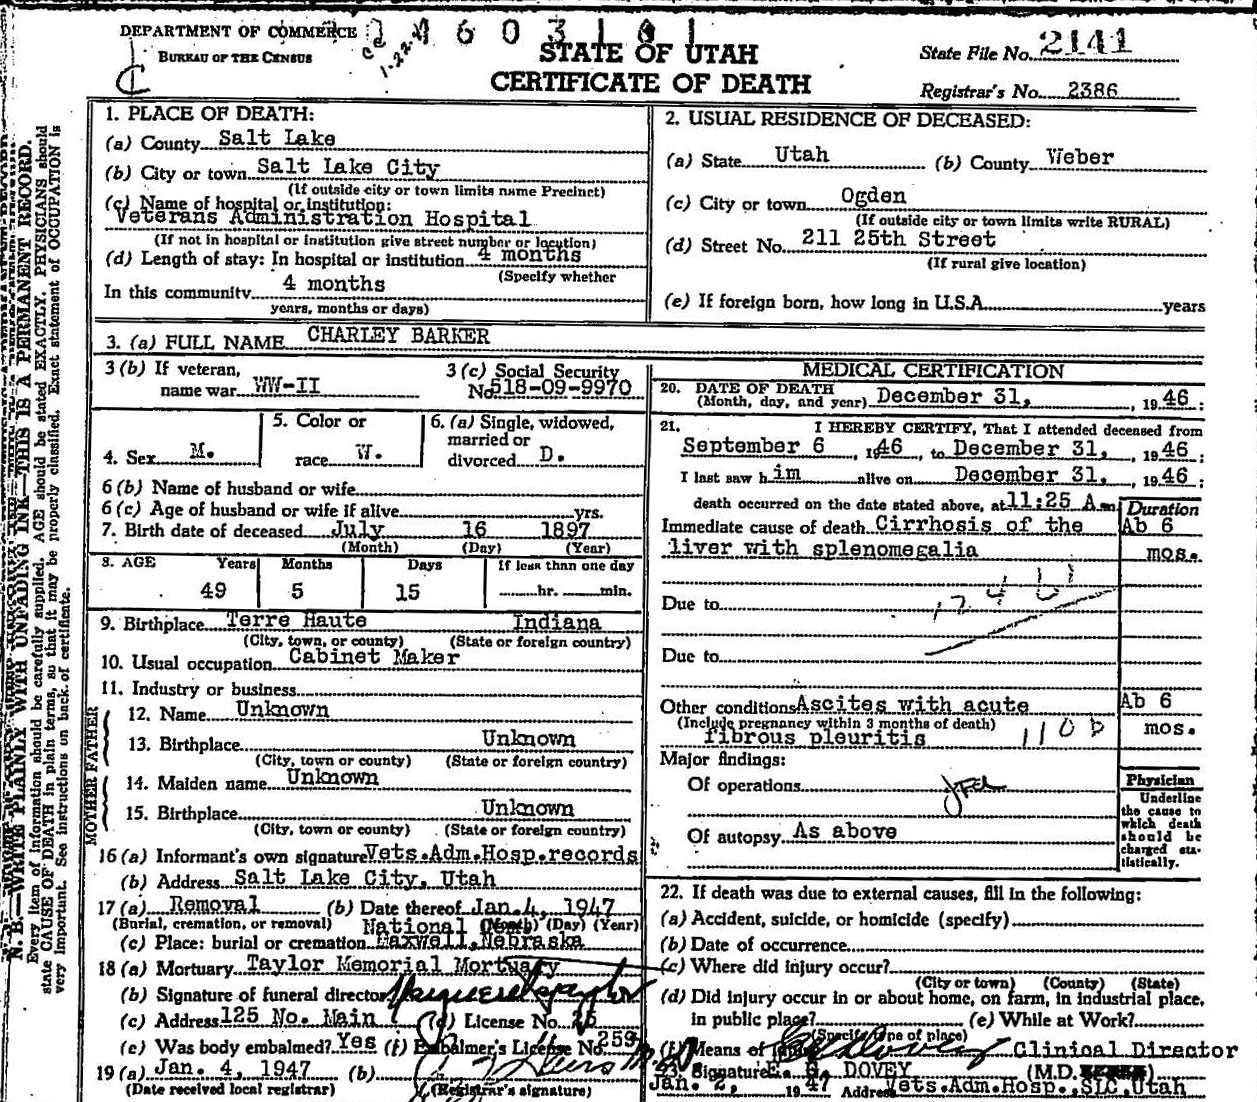 DEPARTMENT OF COMMERCE
BUREAU OF THE CENSUS
1-22-
603101
STATE OF UTAH
CERTIFICATE OF DEATH
State File No. 2141
Registrar's No. 2386
N. B.—WRITE PLAINLY WITH UNFADING INK—THIS IS A PERMANENT RECORD.
Every item of information should be carefully supplied. AGE should be stated EXACTLY. PHYSICIANS should
state CAUSE OF DEATH in plain terms, so that it may be properly classified. Exact statement of OCCUPATION is
very important. See instructions on back of certificate.
1. PLACE OF DEATH:
(a) County Salt Lake
(b) City or town Salt Lake City
(If outside city or town limits name Precinct)
(c) Name of hospital or institution:
Veterans Administration Hospital
(If not in hospital or institution give street number or location)
(d) Length of stay: In hospital or institution 4 months
(Specify whether
In this community 4 months
years, months or days)
2. USUAL RESIDENCE OF DECEASED:
(a) State Utah (b) County Weber
(c) City or town Ogden
(If outside city or town limits write RURAL)
(d) Street No. 211 25th Street
(If rural give location)
(e) If foreign born, how long in U.S.A. years
3. (a) FULL NAME CHARLEY BARKER
3 (b) If veteran,
name war WW-II
3 (c) Social Security
No. 518-09-9970
4. Sex M.
5. Color or
race W.
6. (a) Single, widowed,
married or
divorced D.
6 (b) Name of husband or wife
6 (c) Age of husband or wife if alive yrs.
7. Birth date of deceased July 16 1897
(Month) (Day) (Year)
8. AGE Years Months Days If less than one day
49 5 15 hr. min.
9. Birthplace Terre Haute Indiana
(City, town, or county) (State or foreign country)
10. Usual occupation Cabinet Maker
11. Industry or business
FATHER
12. Name Unknown
13. Birthplace Unknown
(City, town or county) (State or foreign country)
MOTHER
14. Maiden name Unknown
15. Birthplace Unknown
(City, town or county) (State or foreign country)
16 (a) Informant's own signature Vets.Adm.Hosp.records
(b) Address Salt Lake City, Utah
17 (a) Removal (b) Date thereof Jan.4, 1947
(Burial, cremation, or removal) (Month) (Day) (Year)
National
(c) Place: burial or cremation Maxwell, Nebraska
18 (a) Mortuary Taylor Memorial Mortuary
(b) Signature of funeral director
(c) Address 125 No. Main (d) License No. 26
(e) Was body embalmed? Yes (f) Embalmer's License No. 259
19 (a) Jan. 4, 1947 (b)
(Date received local registrar) (Registrar's signature)
MEDICAL CERTIFICATION
20. DATE OF DEATH
(Month, day, and year) December 31, , 1946:
21. I HEREBY CERTIFY, That I attended deceased from
September 6 , 1946, to December 31, , 1946:
I last saw him alive on December 31, , 1946:
death occurred on the date stated above, at 11:25 A m.
Duration
Immediate cause of death Cirrhosis of the Ab 6
liver with splenomegalia mos.
Due to
Due to
Other conditions Ascites with acute Ab 6
(Include pregnancy within 3 months of death)
fibrous pleuritis mos.
Major findings:
Of operations
Of autopsy As above
Physician
Underline
the cause to
which death
should be
charged sta-
tistically.
22. If death was due to external causes, fill in the following:
(a) Accident, suicide, or homicide (specify)
(b) Date of occurrence
(c) Where did injury occur?
(City or town) (County) (State)
(d) Did injury occur in or about home, on farm, in industrial place,
in public place? (e) While at Work?
(Specify type of place)
(f) Means of injury Clinical Director
23. Signature E. G. DOVEY (M.D.
Jan. 2, 1947 Address Vets.Adm.Hosp.,SLC,Utah